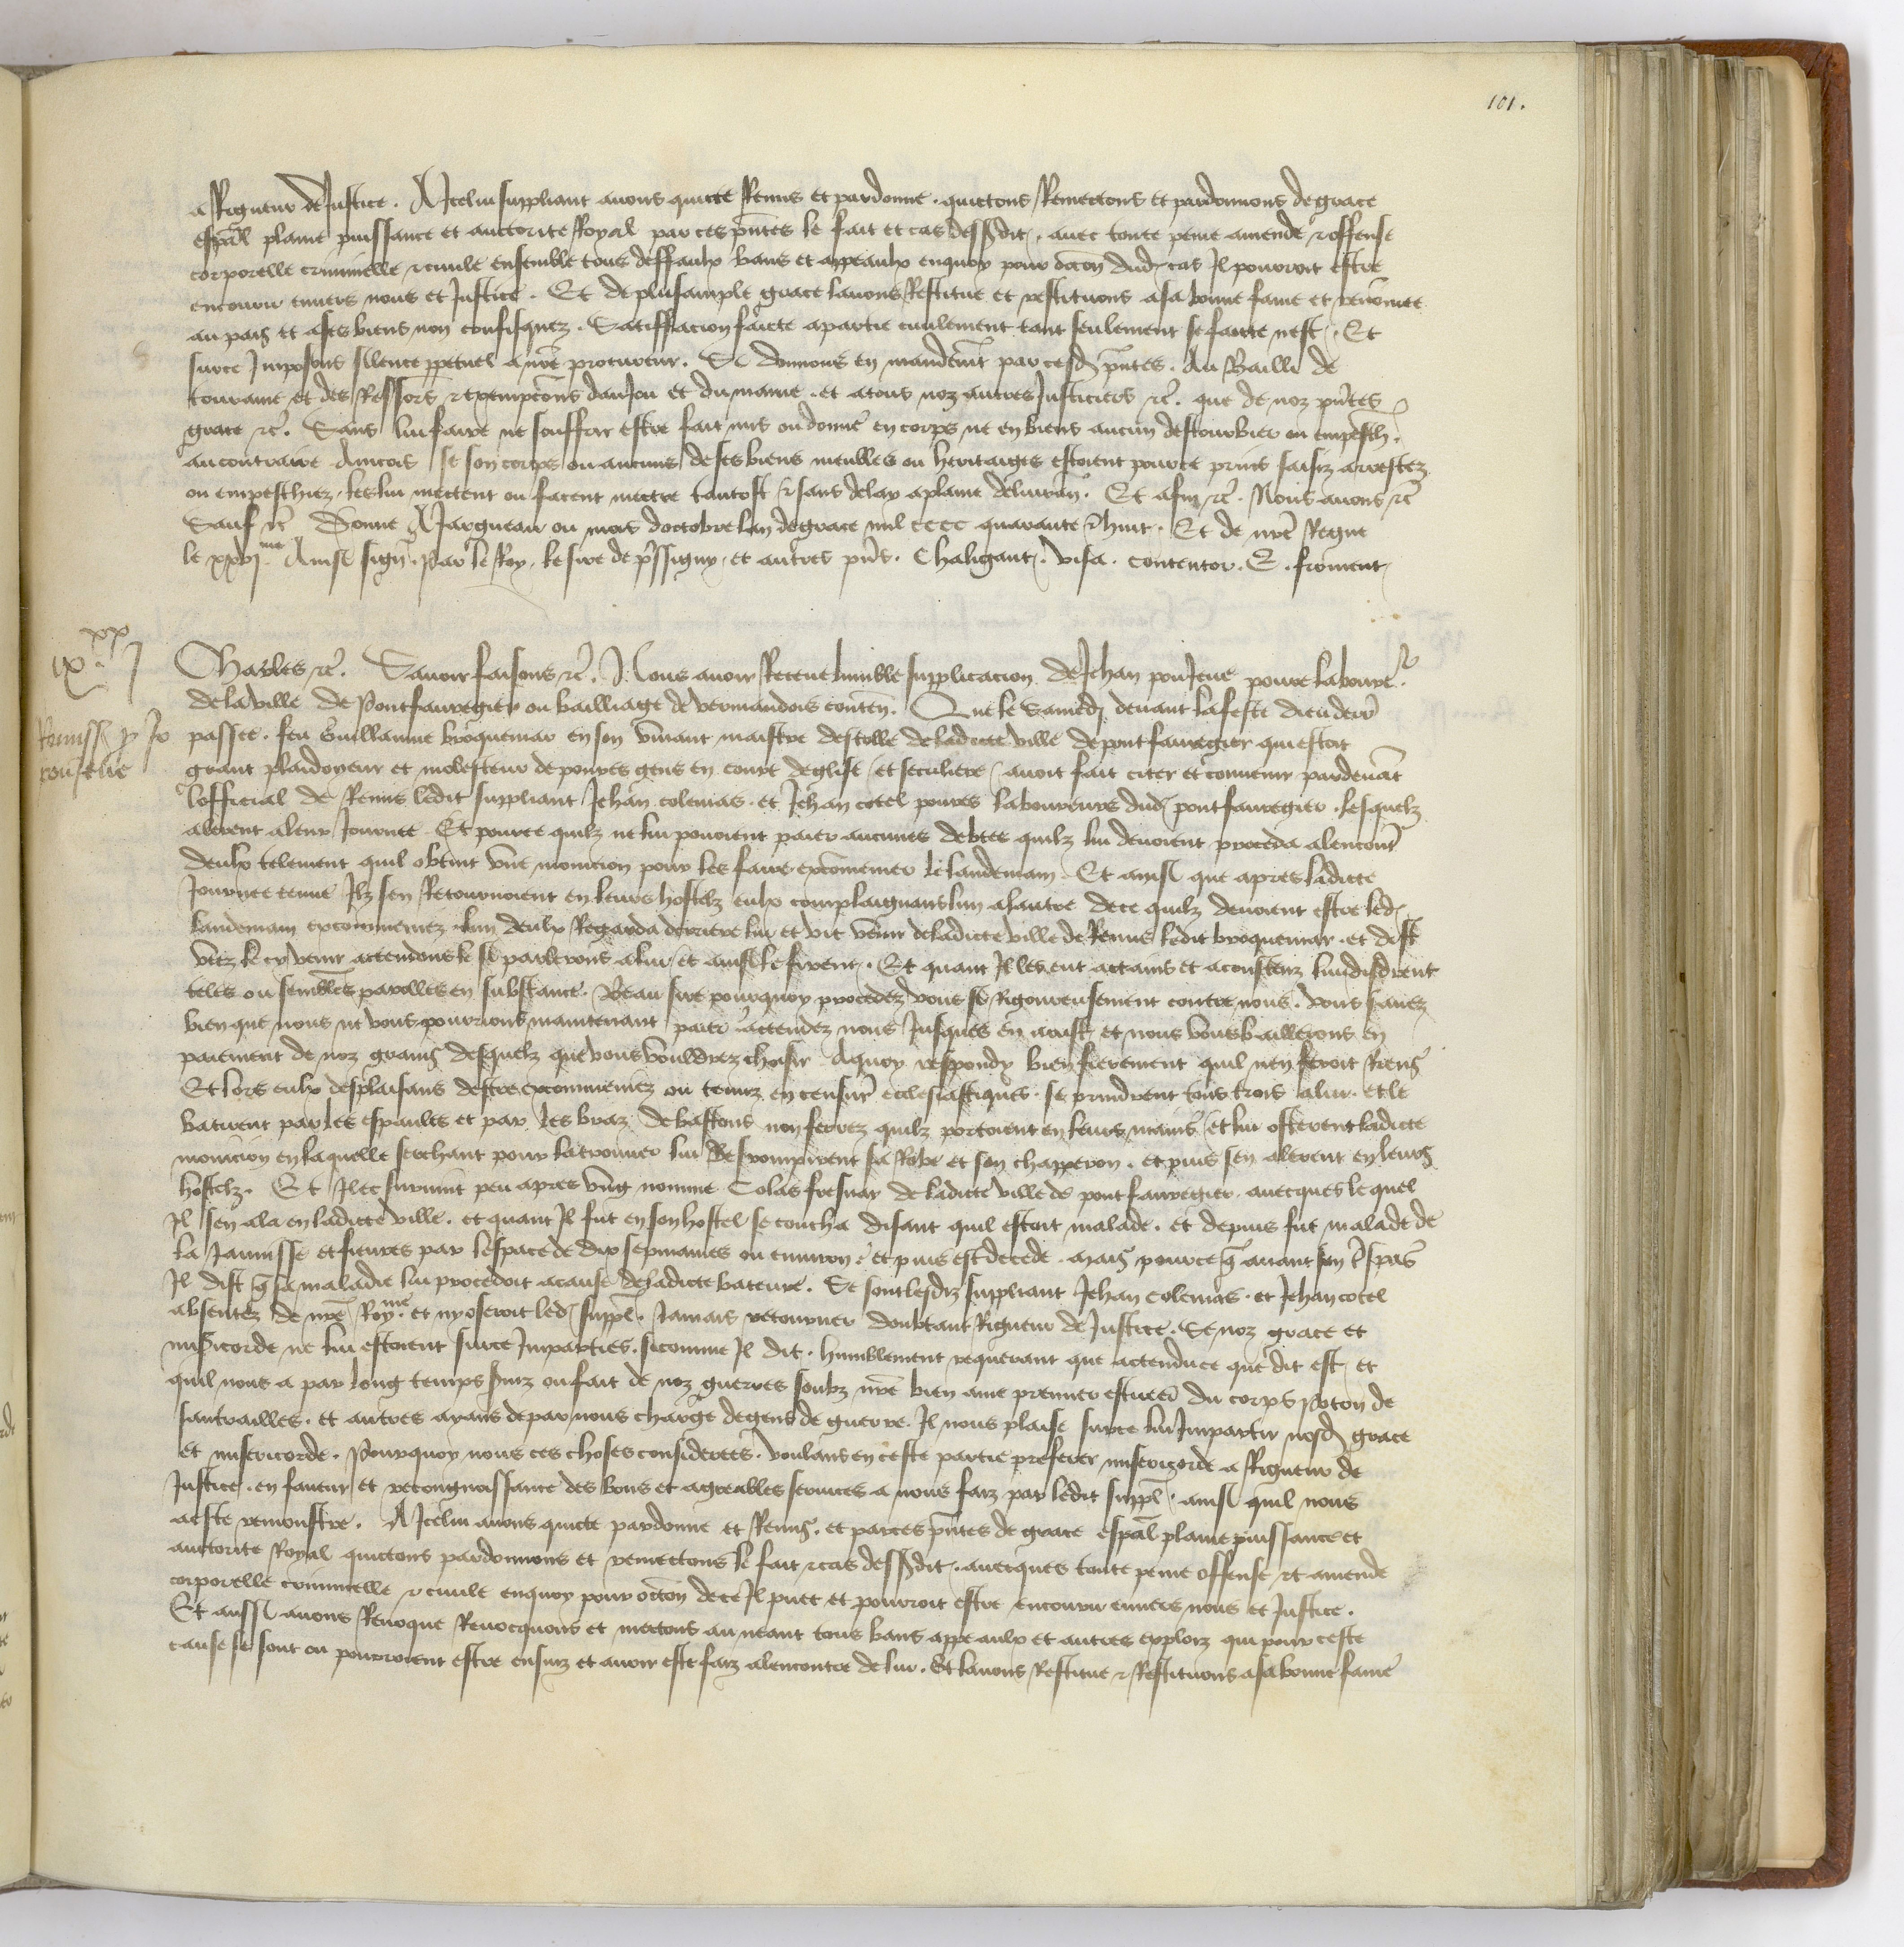 101.
a Rigueur de Justice. A Icelui suppliant avons quicte Remis et pardonne. quictons Remectons et pardonnons de grace
espal plaine puissance et auctorite Royal par ces pntes le fait et cas dessdit. avec toute peine amende & offense
corporelle criminelle & civile ensemble tous deffaulx bans et appeaulx enquoy pour occon dud cas Il pourroit estre
encouru envers nous et Justice. Et de plusample grace lavons Restitue et restituons asa bonne fame et renommee
au pais et ases biens non confisquez. Satisffacion faicte apartie civilement tant seulement se faicte nest. Et
surce Imposons silence ppetuel a nre procureur. Se donnons en mandemt par cesd pntes. Au Bailli de
touraine et des Ressors & exempcons danjou et du maine. et atous noz autres Justiciers &c. que de noz pntes
grace &c. Sans lui faire ne souffrir estre fait mis ou donne en corps ne en biens aucun destourbier ou empesch.
aucontraire Aincois se son corps ou aucuns de ses biens meubles ou heritaiges estoient pource prins saisiz arrestez
ou empeschiez. les lui mectent ou facent mectre tantost & sans delay aplaine delivran. Et afin &c. Nous avons &c
Sauf &c Donne A Jargueau ou mois doctobre lan de grace mil cccc quarante & huit. Et de nre Regne
le xxvj me Ainsi sign. Par le Roy. le sire de pssigny. et autres pns. Chaligant. visa. contentor. E. froment
ix xx j
Remiss p Jo
pouJeue
Charles &c. Savoir faisons &c. Nous avoir Receue humble supplicacion de Jehan pouJeue povre laboure r
dela ville de Pontfauregier ou bailliage de vermandois conten. Que le Samedi devant lafeste dieu derr
passee. feu Guillaume broquemar en son vivant maistre descolle deladicte ville de pontfauregier qui estoit
grant plaidoyeur et molesteur de povres gens en court deglise et seculiere avoit fait citer et convenir pardevat
lofficial de Reims ledit suppliant Jehan colemas. et Jehan cotel povres laboureurs dud pontfauregier. lesquelz
alerent aleur Journee. Et pource quilz ne lui povoient paier aucunes debtes quilz lui devoient proceda alencont
deulx telement quil obtint une monicion pour les faire excommenier le landemain Et ainsi que apres ladicte
Journee tenue Ilz sen Retournoient en leurs hostelz eulx complaignans lun alautre dece quilz devoient estre led
landemain excommeniez lun deulx Regarda derriere lui et vit venir deladicte ville de Reims ledit broquemar. et dist
veez le cy venir actendons le si parlerons alui et ainsi le firent. Et quant Il les eut actains et aconsteuz lui disdrent
teles ou semblees parolles en substance. Beau sire pourquoy procedez vous si Rigoureusement contre nous. vous savez
bien que nous ne vous pourrions maintenant paier actendez nous Jusques en aoust et nous vous baillerons en
paiement de noz grains desquelz que vous vouldrez choisir Aquoy respondy bien fierement quil nen feroit Riens
Et lors eulx desplaisans destre excommeniez ou tenuz en censur ecclesiastiques. se prindrent tous trois alui. et le
batirent par les espaules et par les braz de bastons non ferrez quilz portoient en leurs mains et lui osterent ladicte
monicion en laquelle serchant pour la trouver lui desrompirent sa Robe et son chapperon. et puis sen alerent en leurs
hostelz. Et Ilec survint peu apres ung nomme Colas fresnar deladicte ville de pont fauregier. avecques lequel
Il sen ala en ladicte ville. et quant Il fut en son hostel se coucha disant quil estoit malade. et depuis fut malade de
la Jaunisse et fievres par lespace de dix sepmaines ou environ. et puis est decede. mais pource q avant son trespas
Il dist q sa maladie lui procedoit acause deladicte bateure. Se sont lesdiz suppliant Jehan Colemas. et Jehan cotel
absentez de nre Roy me. et ny oseroit led suppl. Jamais retourner doubtant Rigueur de Justice. Se noz grace et
misicorde ne lui estoient surce Imparties. sicomme Il dit. humblement requerant que actendu ce que dit est et
quil nous a par long temps servi ou fait de noz guerres soubz nre bien ame premier escuier du corps Poton de
santrailles. et autres ayans de par nous charge degens de guerre. Il nous plaise surce lui Impartir nosd grace
et misericorde. Pourquoy nous ces choses considerees. voulans en ceste partie preferer misericorde a Rigueur de
Justice. en faveur et recongnoissance des bons et agreables services a nous faiz par ledit suppl. ainsi quil nous
aeste remonstre. A Icelui avons quicte pardonne et Remis. et par ces pntes de grace espal plaine puissance et
auctorite Royal quictons pardonnons et remectons le fait & cas dessdit. avecques toute peine offense et amende
corporelle criminelle & civile enquoy pour occon dece Il puet et pourroit estre encouru envers nous et Justice.
Et aussi avons Revoque Revocquons et mectons au neant tous bans appeaulx et autres exploiz qui pour ceste
cause se sont ou pourroient estre ensuiz et avoir este faiz alencontre de lui. Et lavons Restitue & Restituons asa bonne fame